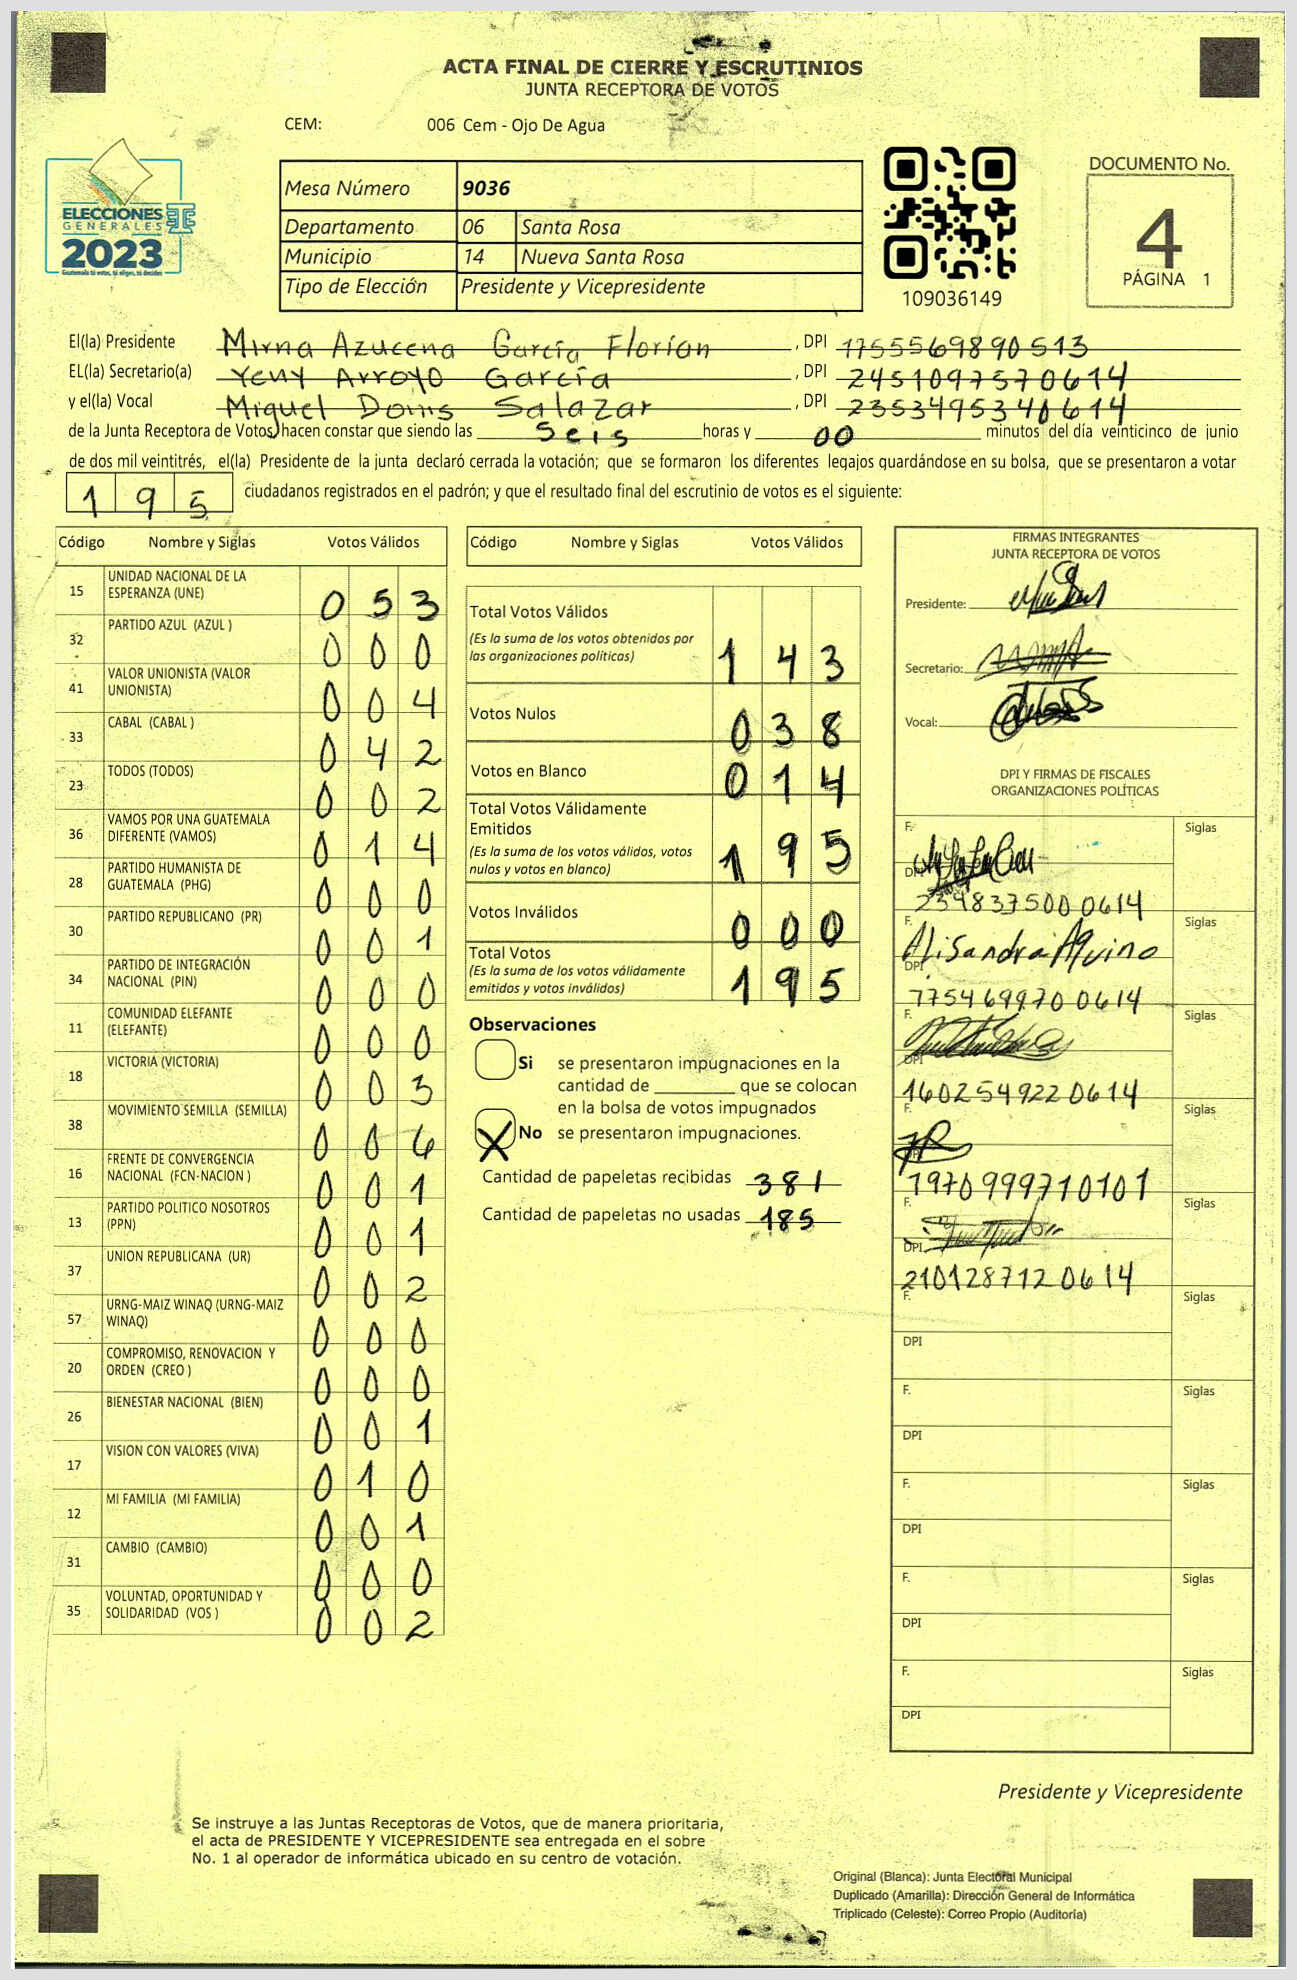 ACTA FINAL DE CIERRE Y ESCRUTINIOS
JUNTA RECEPTORA DE VOTOS
CEM: 006 Cem - Ojo De Agua
ELECCIONES
GENERALES
2023
Guatemala tú votas, tú eliges, tú decides
Mesa Número 9036
Departamento 06 Santa Rosa
Municipio 14 Nueva Santa Rosa
Tipo de Elección Presidente y Vicepresidente
109036149
DOCUMENTO No.
4
PÁGINA 1
El(la) Presidente Mirna Azucena García Florian, DPI 1755569890513
EL(la) Secretario(a) Yeny Arroyo García, DPI 2451097570614
y el(la) Vocal Miguel Donis Salazar, DPI 2353495340614
de la Junta Receptora de Votos, hacen constar que siendo las seis horas y 00 minutos del día veinticinco de junio
de dos mil veintitrés, el(la) Presidente de la junta declaró cerrada la votación; que se formaron los diferentes legajos guardándose en su bolsa, que se presentaron a votar
195 ciudadanos registrados en el padrón; y que el resultado final del escrutinio de votos es el siguiente:
Código Nombre y Siglas Votos Válidos
15 UNIDAD NACIONAL DE LA
ESPERANZA (UNE) 053
32 PARTIDO AZUL (AZUL ) 000
41 VALOR UNIONISTA (VALOR
UNIONISTA) 004
33 CABAL (CABAL ) 042
23 TODOS (TODOS) 002
36 VAMOS POR UNA GUATEMALA
DIFERENTE (VAMOS) 014
28 PARTIDO HUMANISTA DE
GUATEMALA (PHG) 000
30 PARTIDO REPUBLICANO (PR) 001
34 PARTIDO DE INTEGRACIÓN
NACIONAL (PIN) 000
11 COMUNIDAD ELEFANTE
(ELEFANTE) 000
18 VICTORIA (VICTORIA) 003
38 MOVIMIENTO SEMILLA (SEMILLA) 006
16 FRENTE DE CONVERGENCIA
NACIONAL (FCN-NACION ) 001
13 PARTIDO POLITICO NOSOTROS
(PPN) 001
37 UNION REPUBLICANA (UR) 002
57 URNG-MAIZ WINAQ (URNG-MAIZ
WINAQ) 000
20 COMPROMISO, RENOVACION Y
ORDEN (CREO ) 000
26 BIENESTAR NACIONAL (BIEN) 001
17 VISION CON VALORES (VIVA) 010
12 MI FAMILIA (MI FAMILIA) 001
31 CAMBIO (CAMBIO) 000
35 VOLUNTAD, OPORTUNIDAD Y
SOLIDARIDAD (VOS ) 002
Código Nombre y Siglas Votos Válidos
Total Votos Válidos
(Es la suma de los votos obtenidos por
las organizaciones políticas) 143
Votos Nulos 038
Votos en Blanco 014
Total Votos Válidamente
Emitidos
(Es la suma de los votos válidos, votos
nulos y votos en blanco) 195
Votos Inválidos 000
Total Votos
(Es la suma de los votos válidamente
emitidos y votos inválidos) 195
Observaciones
Si se presentaron impugnaciones en la
cantidad de ________ que se colocan
en la bolsa de votos impugnados
X No se presentaron impugnaciones.
Cantidad de papeletas recibidas 381
Cantidad de papeletas no usadas 185
FIRMAS INTEGRANTES
JUNTA RECEPTORA DE VOTOS
Presidente:
Secretario:
Vocal:
DPI Y FIRMAS DE FISCALES
ORGANIZACIONES POLÍTICAS
F. Siglas
DPI 2398375000614
F. Alisandra Aquino Siglas
DPI 7754699700614
F. Siglas
DPI 1602549220614
F. Siglas
DPI 1970999710101
F. Siglas
DPI 2101287120614
F. Siglas
DPI
F. Siglas
DPI
F. Siglas
DPI
F. Siglas
DPI
F. Siglas
DPI
Presidente y Vicepresidente
Se instruye a las Juntas Receptoras de Votos, que de manera prioritaria,
el acta de PRESIDENTE Y VICEPRESIDENTE sea entregada en el sobre
No. 1 al operador de informática ubicado en su centro de votación.
Original (Blanca): Junta Electoral Municipal
Duplicado (Amarilla): Dirección General de Informática
Triplicado (Celeste): Correo Propio (Auditoría)